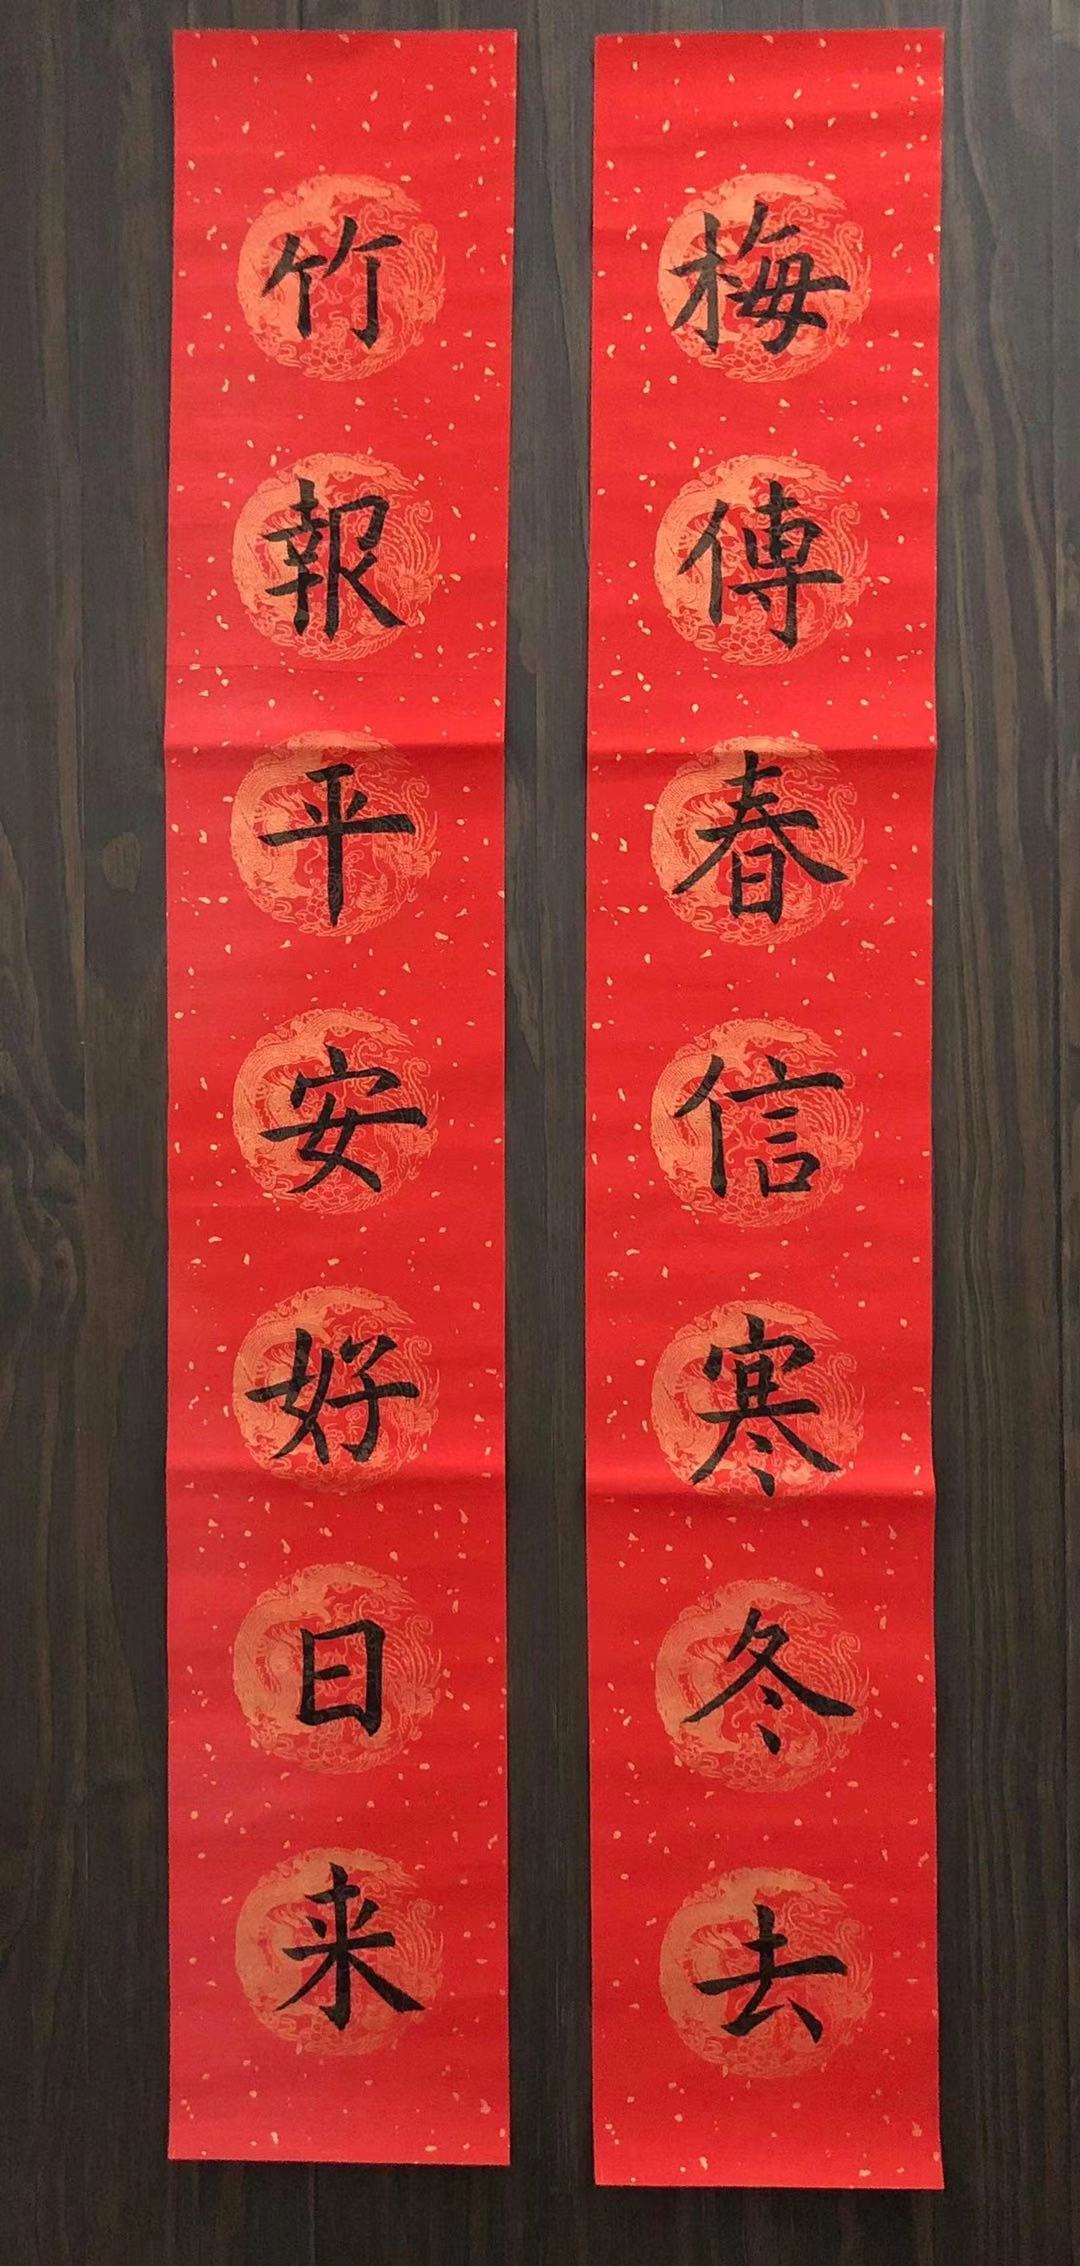 梅傳春信寒冬去
竹報平安好日来